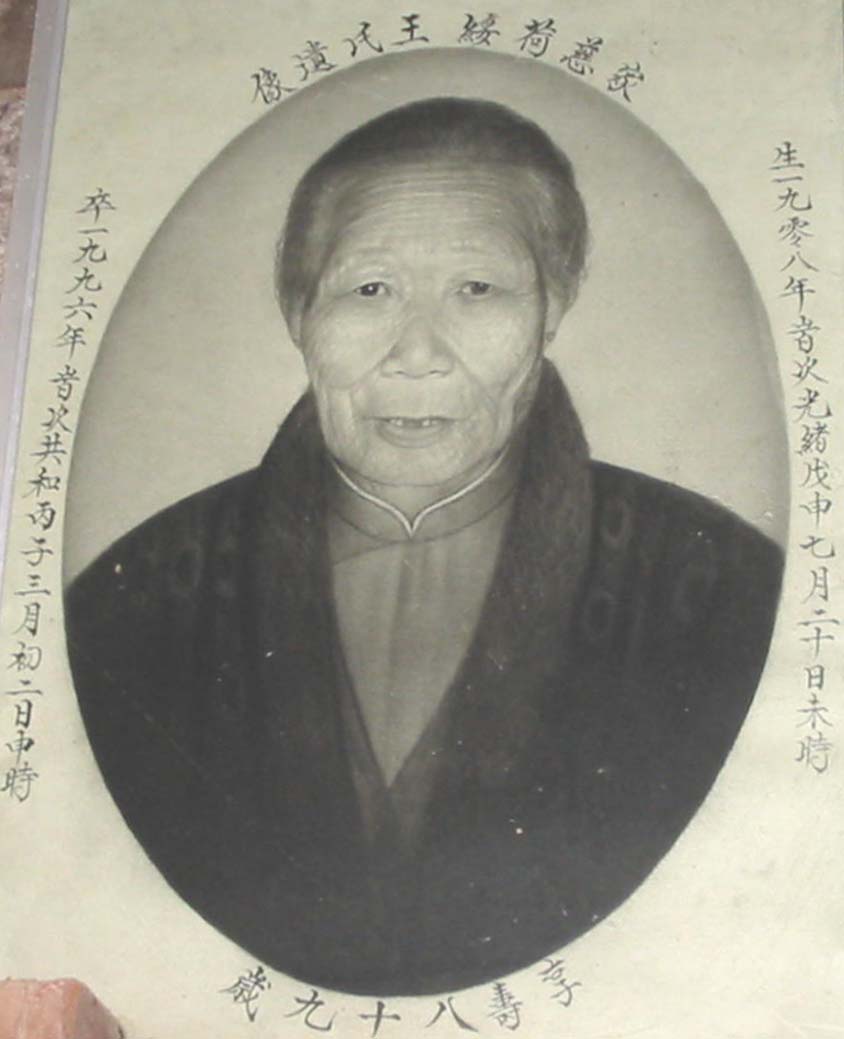 家慈荷綏王氏遺像
生一九零八年旹次光緒戊申七月二十日未時
卒一九九六年旹次共和丙子三月初二日申時
享壽八十九歲